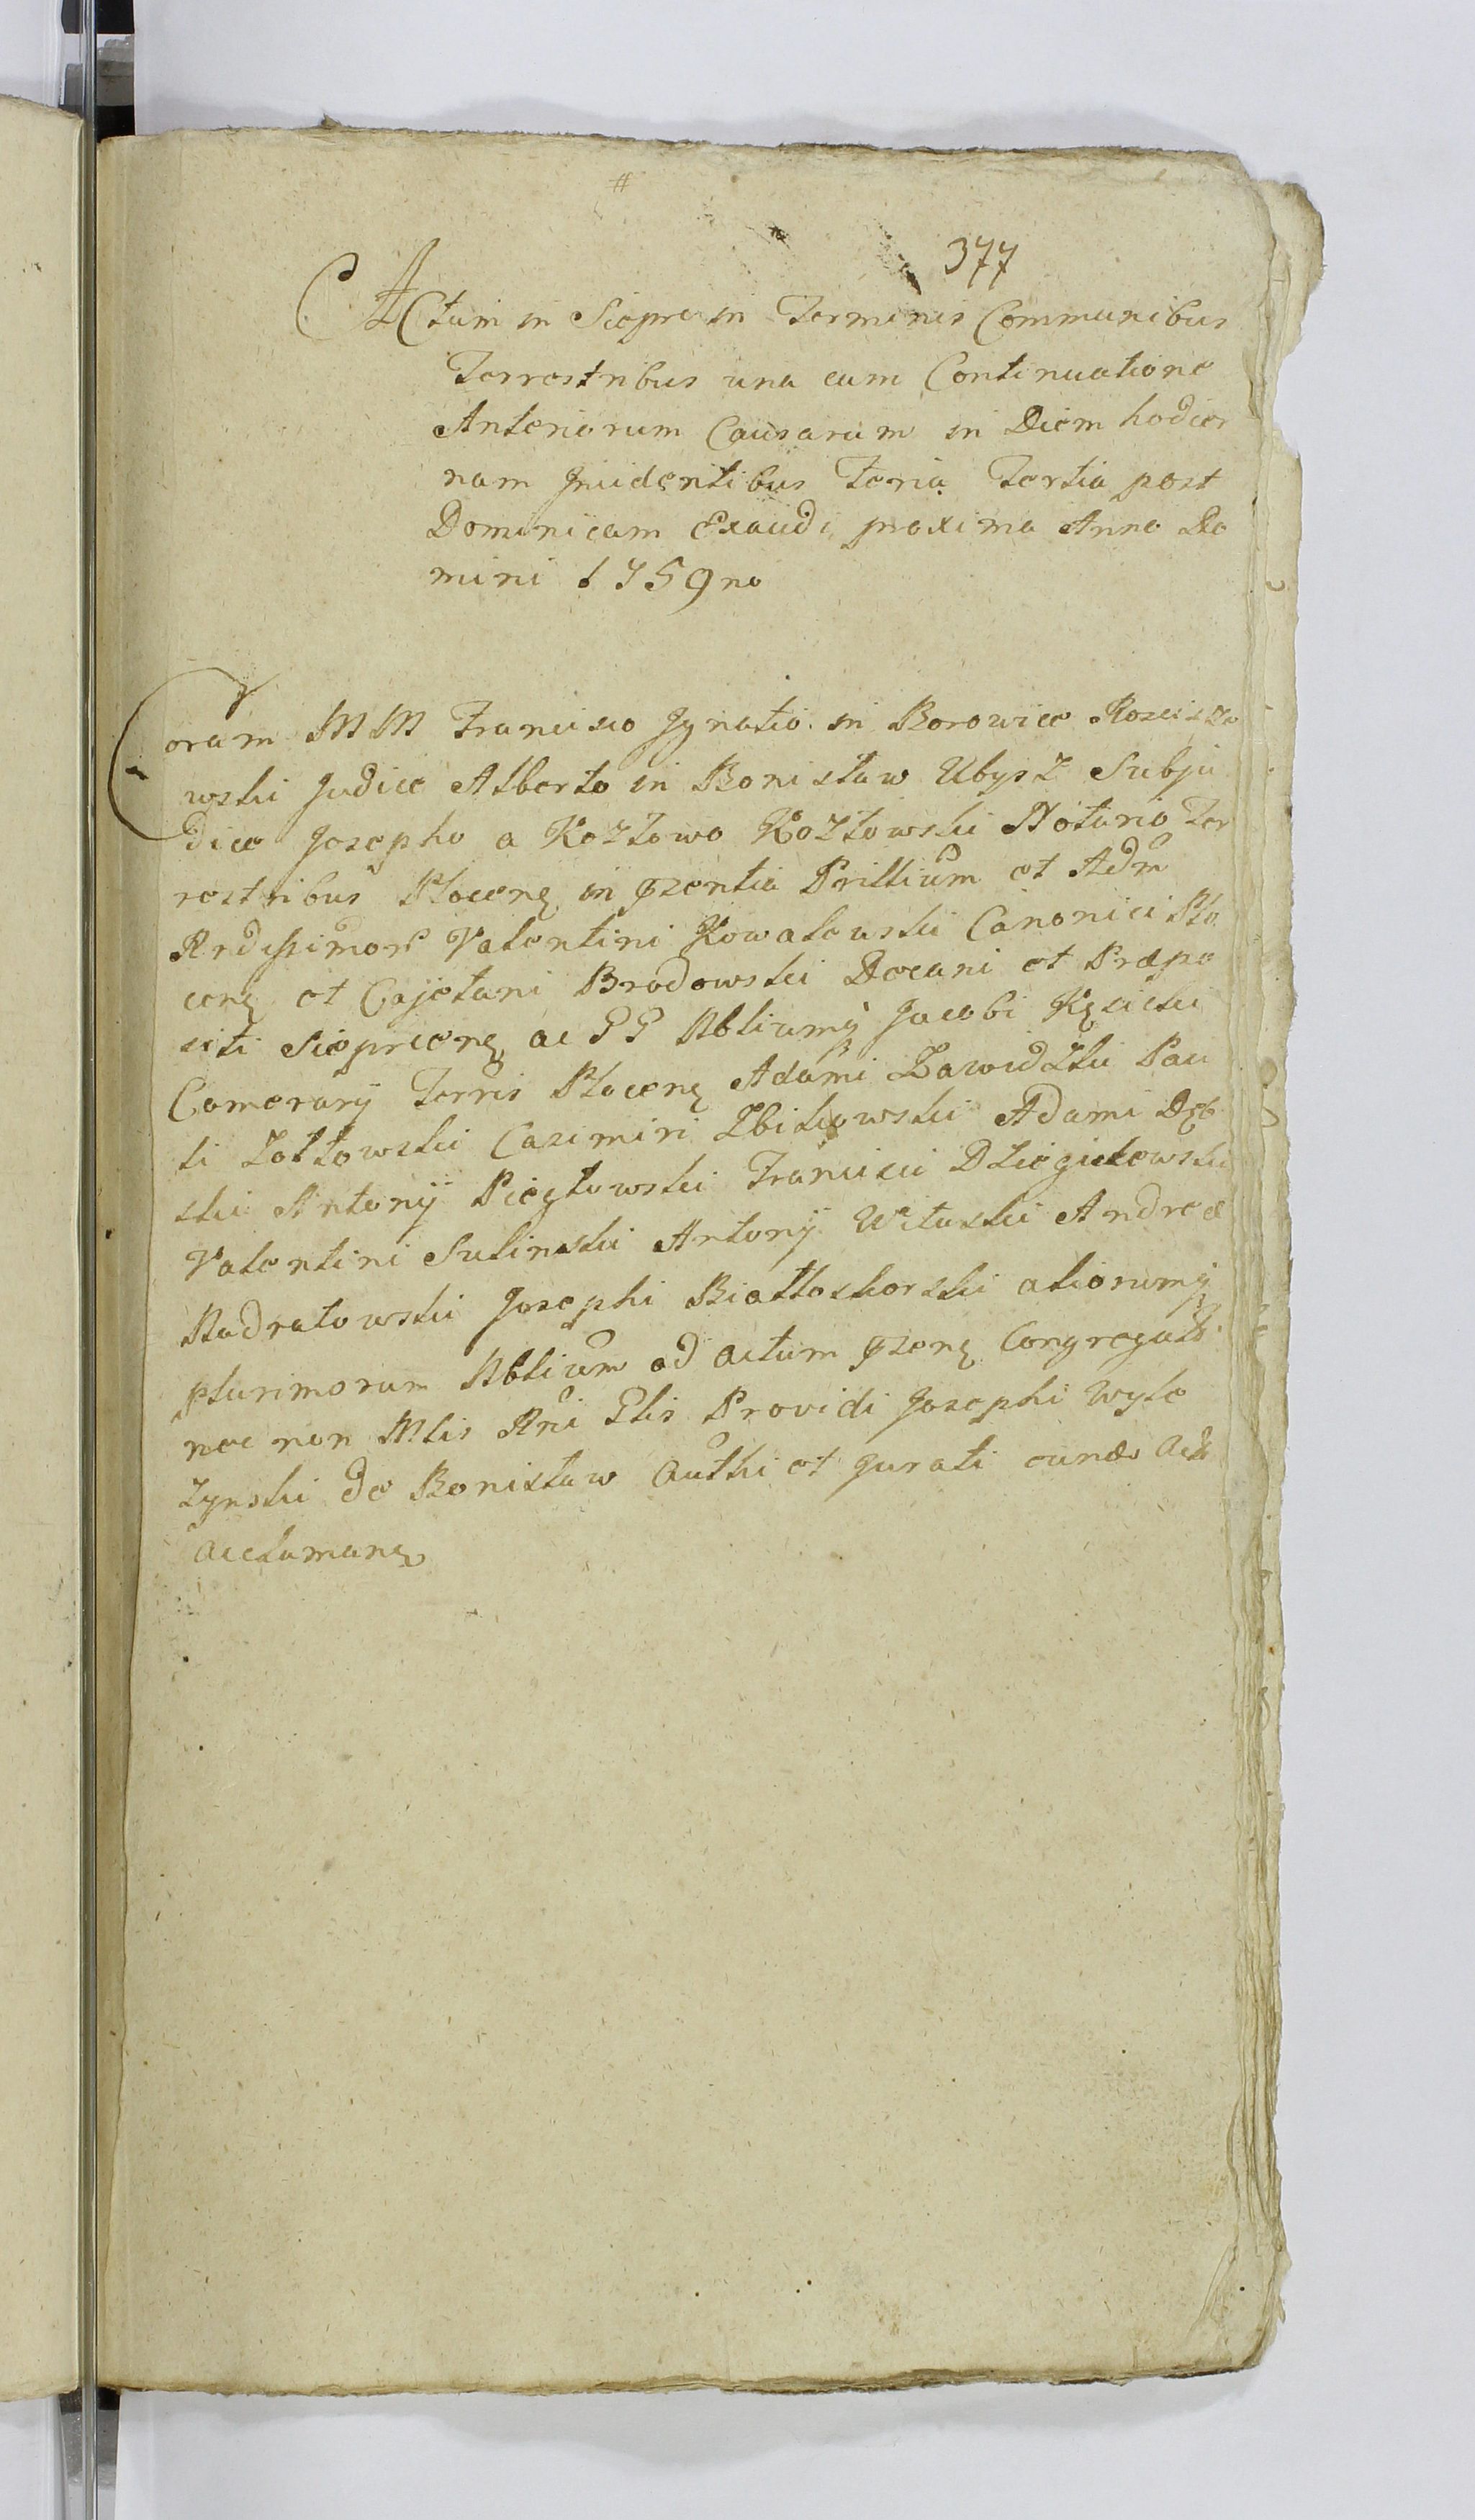 #
377
Actum in Sieprc in Terminis Communibus
Terrestribus una cum Continuatione
Anteriorum Causarum in Diem hodier
nam Incidentibus Feria Tertia post
Dominicam Exaudi proxima Anno Do
mini 1759no
Coram MM Francisco Ignatio in Borowice Rosciszo
wski Judice Alberto in Bonisław Ubysz Subju
dice Josepho a Kozłowo Kozłowski Notario Ter
restribus Płocen in pzentia Prillium et Adm
Rndissimor Valentini Kowalewski Canonici Pło
cen et Cajetani Brodowski Decani et Præpo
siti Sieprcen ac GG Nbliumq Jacobi Kęsicki
Camerarij Terris Płocen Adami Zawidzki Pau
li Zołtowski Casimiri Zbikowski Adami Dęb
ski Antonij Piegłowski Francisci Dziegielewski
Valentini Sulinski Antonij Wituski Andreæ
Nadratowski Josephi Białłoskorski aliorumq
plurimorum Nblium ad actum pzen Congregatt
nec non Mlis Rni Glis Providi Josephi Wyle
zynski de Bonisław Authi et Jurati cunda Acta
acclaman